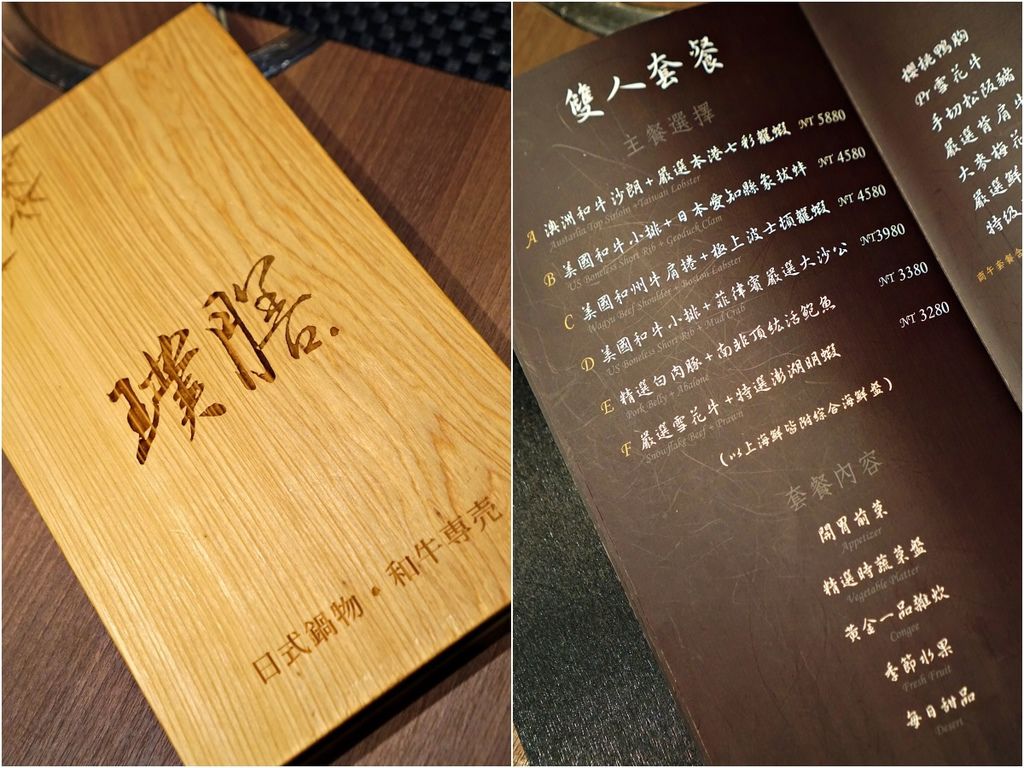 璞膳
日式鍋物 • 和牛專売
雙人套餐
主餐選擇
A 澳洲和牛沙朗+嚴選本港七彩龍蝦 NT 5880
Austarlia Top Sirloin +Taiuan Lobster
B 美國和牛小排+日本愛知縣象拔蚌 NT 4580
US Boneless Short Rib + Geoduck Clam
C 美國和州牛肩捲+極上波士頓龍蝦 NT 4580
Wagyu Beef Shoulder + Boston Lobster
D 美國和牛小排+菲律賓嚴選大沙公 NT3980
US Boneless Short Rib + Mud Crab
E 精選白肉豚+南非頂級活鮑魚 NT 3380
Pork Belly + Abalone
F 嚴選雪花牛+特選澎湖明蝦 NT 3280
Snowflake Beef + Prawn
(以上海鮮皆附綜合海鮮盤)
套餐內容
開胃前菜
Appetizer
精選時蔬菜盤
Vegetable Platter
黃金一品雜炊
Congee
季節水果
Fresh Fruit
每日甜品
Desert
櫻桃鴨胸
Pr雪花牛
手切松阪豬
嚴選背肩牛
大麥梅花
嚴選鮮
特級